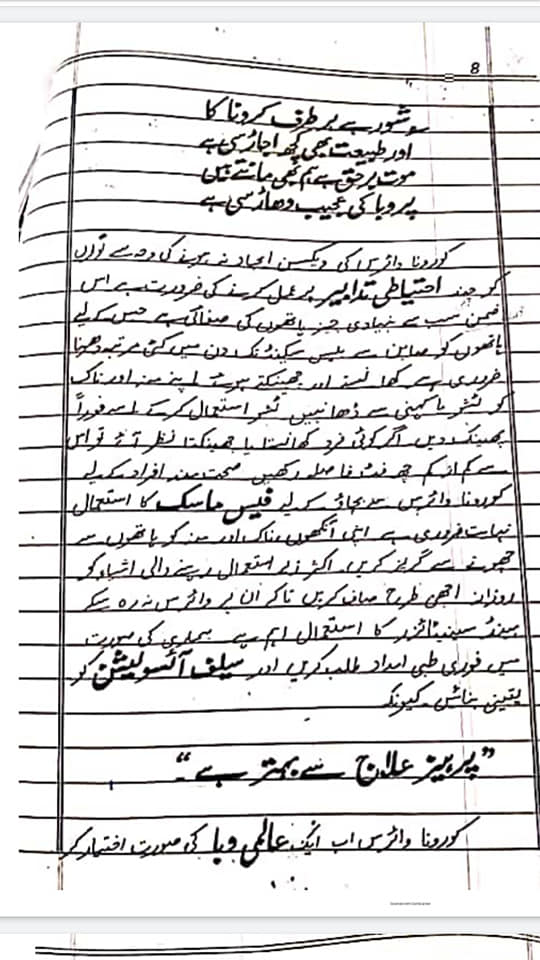 8
سو شور ہے ہر طرف کرونا کا
اور طبیعت بھی کچھ اجاڑ سی ہے
موت برحق ہے ہم بھی مانتے ہیں
پر وبا کی عجیب دھاڑ سی ہے
کورونا وائرس کی ویکسن ایجاد نہ ہونے کی وجہ سے لوگوں
کو چند احتیاطی تدابیر پر عمل کرنے کی ضرورت ہے اس
ضمن سب سے بنیادی چیز ہاتھوں کی صفائی ہے جس کے لیے
ہاتھوں کو صابن سے بیس سیکنڈ تک دن میں کئی مرتبہ دھونا
ضروری ہے کھانستے اور چھینکتے ہوئے اپنے منہ اور ناک
کو ٹشو یا کہنی سے ڈھانپیں ٹشو استعمال کرکے اسے فوراً
پھینک دیں اگر کوئی فرد کھانستا یا چھینکتا نظر آئے تو اس
سے کم از کم چھ فٹ فاصلہ رکھیں صحت مند افراد کے لیے
کورونا وائرس سے بچاؤ کے لیے فیس ماسک کا استعمال
نہایت ضروری ہے اپنی آنکھوں، ناک اور منہ کو ہاتھوں سے
چھونے سے گریز کریں اکثر زیر استعمال رہنے والی اشیاء کو
روزانہ اچھی طرح صاف کریں تاکہ ان پے وائرس نہ رہ سکے
ہینڈ سینیٹائزر کا استعمال اہم ہے بیماری کی صورت
میں فوری طبی امداد طلب کریں اور سیلف آئسولیشن کو
یقینی بنائیں۔ کیونکہ
”پرہیز علاج سے بہتر ہے۔“
کورونا وائرس اب ایک عالمی وبا کی صورت اختیار کر